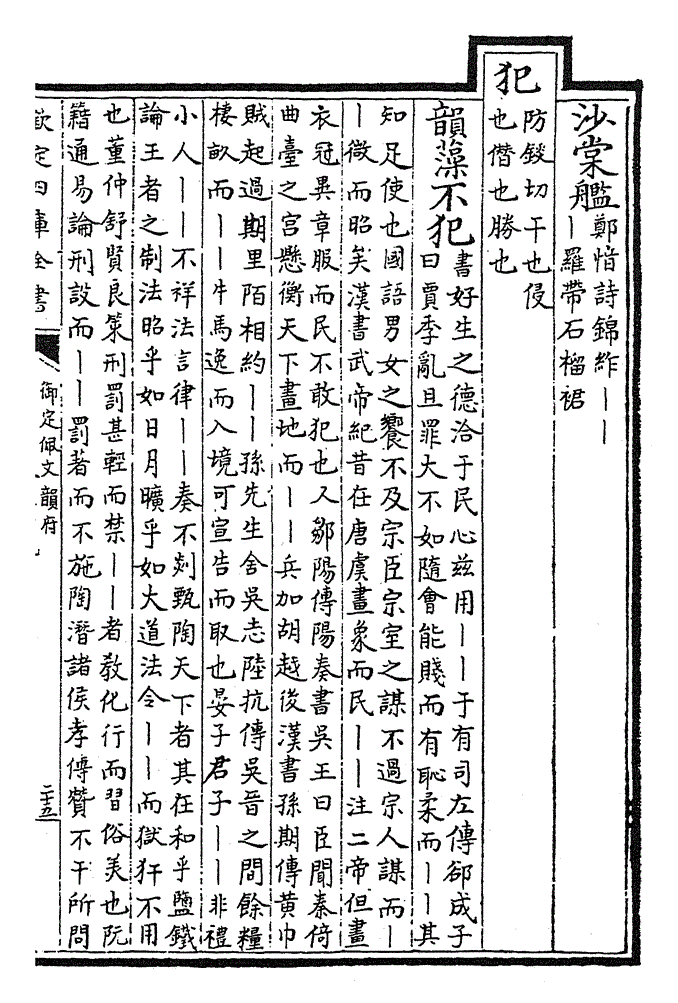 沙棠艦鄭愔詩錦䋏丨丨
丨羅帶石榴裙
犯防錽切干也侵
也僭也勝也
韻藻不犯書好生之德洽于民心兹用丨丨于有司左傳郤成子
曰賈季亂且罪大不如隨會能賤而有恥柔而丨丨其
知足使也國語男女之饗不及宗臣宗室之謀不過宗人謀而丨
丨微而昭矣漢書武帝紀昔在唐虞畫象而民丨丨注二帝但畫
衣冠異章服而民不敢犯也人鄒陽傳陽奏書吳王曰臣聞秦倚
曲臺之宮懸衡天下畫地而丨丨兵加胡越後漢書孫期傳黃巾
賊起過期里陌相約丨丨孫先生舍吳志陸抗傳吳晉之間餘糧
棲畝而丨丨牛馬逸而入境可宣告而取也晏子君子丨丨非禮
小人丨丨不祥法言律丨丨奏不剡甄陶天下者其在和乎鹽鐵
論王者之制法昭乎如日月曠乎如大道法令丨丨而獄犴不用
也董仲舒賢良策刑罰甚輕而禁丨丨者教化行而習俗美也阮
籍通易論刑設而丨丨罰著而不施陶潛諸侯孝傳贊不干所問
欽定四庫全書
御定佩文韻府
二十五